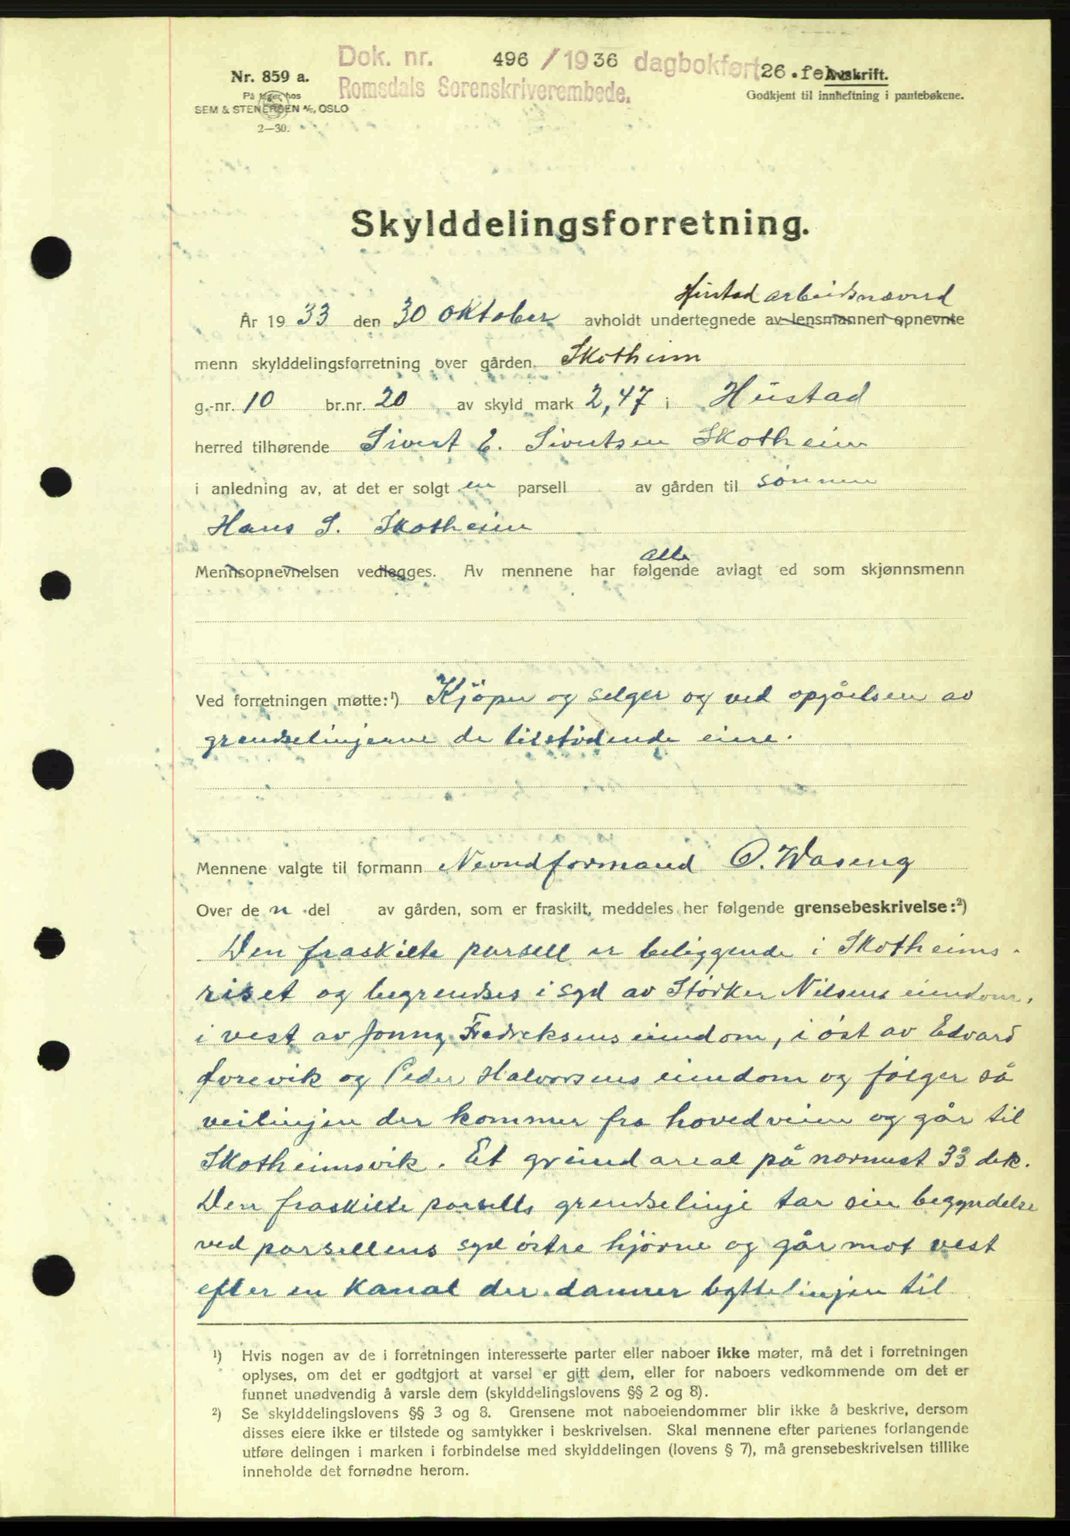 Dok. nr. 496 / 1936 dagbokført 26. feb. Avskrift.
Romsdals Sorenskriverembede.
Nr. 859 a.
På lager hos
SEM & STENERSEN A/S, OSLO
2—30.
Godkjent til innheftning i pantebøkene.
Skylddelingsforretning.
Hustad arbeidsnævnd
År 1933 den 30 oktober avholdt undertegnede av lensmannen opnevnte
menn skylddelingsforretning over gården Skotheim
g.-nr. 10 br.nr. 20 av skyld mark 2,47 i Hustad
herred tilhørende Sivert E. Sivertsen Skotheim
i anledning av, at det er solgt en parsell av gården til sønnen
Hans S. Skotheim
alle
Mennsopnevnelsen vedlegges. Av mennene har følgende avlagt ed som skjønnsmenn
Ved forretningen møtte:¹) Kjöper og selger og ved opgåelsen av
grendselinjerne de tilstödende eiere.
Mennene valgte til formann Nevndformand O. Waseng
Over den del av gården, som er fraskilt, meddeles her følgende grensebeskrivelse:²)
Den fraskilte parsell er beliggende i Skotheims-
riset og begrendses i syd av Størker Nilsens eiendom,
i vest av Jonny Fredriksens eiendom, i öst av Edvard
Farevik og Peder Halvorsens eiendom og følger så
veilinjen der kommer fra hovedveien og går til
Skotheimsvik. Et grund areal på nærmest 33 dek.
Den fraskilte parsells grendselinje tar sin begyndelse
ved parsellens syd östre hjörne og går mot vest
efter en kanal der danner byttelinjen til
¹) Hvis nogen av de i forretningen interesserte parter eller naboer ikke møter, må det i forretningen
oplyses, om det er godtgjort at varsel er gitt dem, eller for naboers vedkommende om det er
funnet unødvendig å varsle dem (skylddelingslovens §§ 2 og 8).
²) Se skylddelingslovens §§ 3 og 8. Grensene mot naboeiendommer blir ikke å beskrive, dersom
disses eiere ikke er tilstede og samtykker i beskrivelsen. Skal mennene efter partenes forlangende
utføre delingen i marken i forbindelse med skylddelingen (lovens § 7), må grensebeskrivelsen tillike
inneholde det fornødne herom.